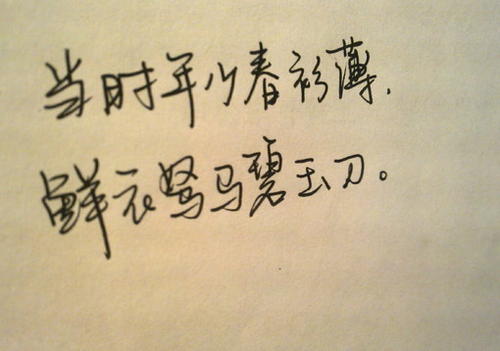 当时年少春衫薄,
鲜衣驽马碧玉刀。